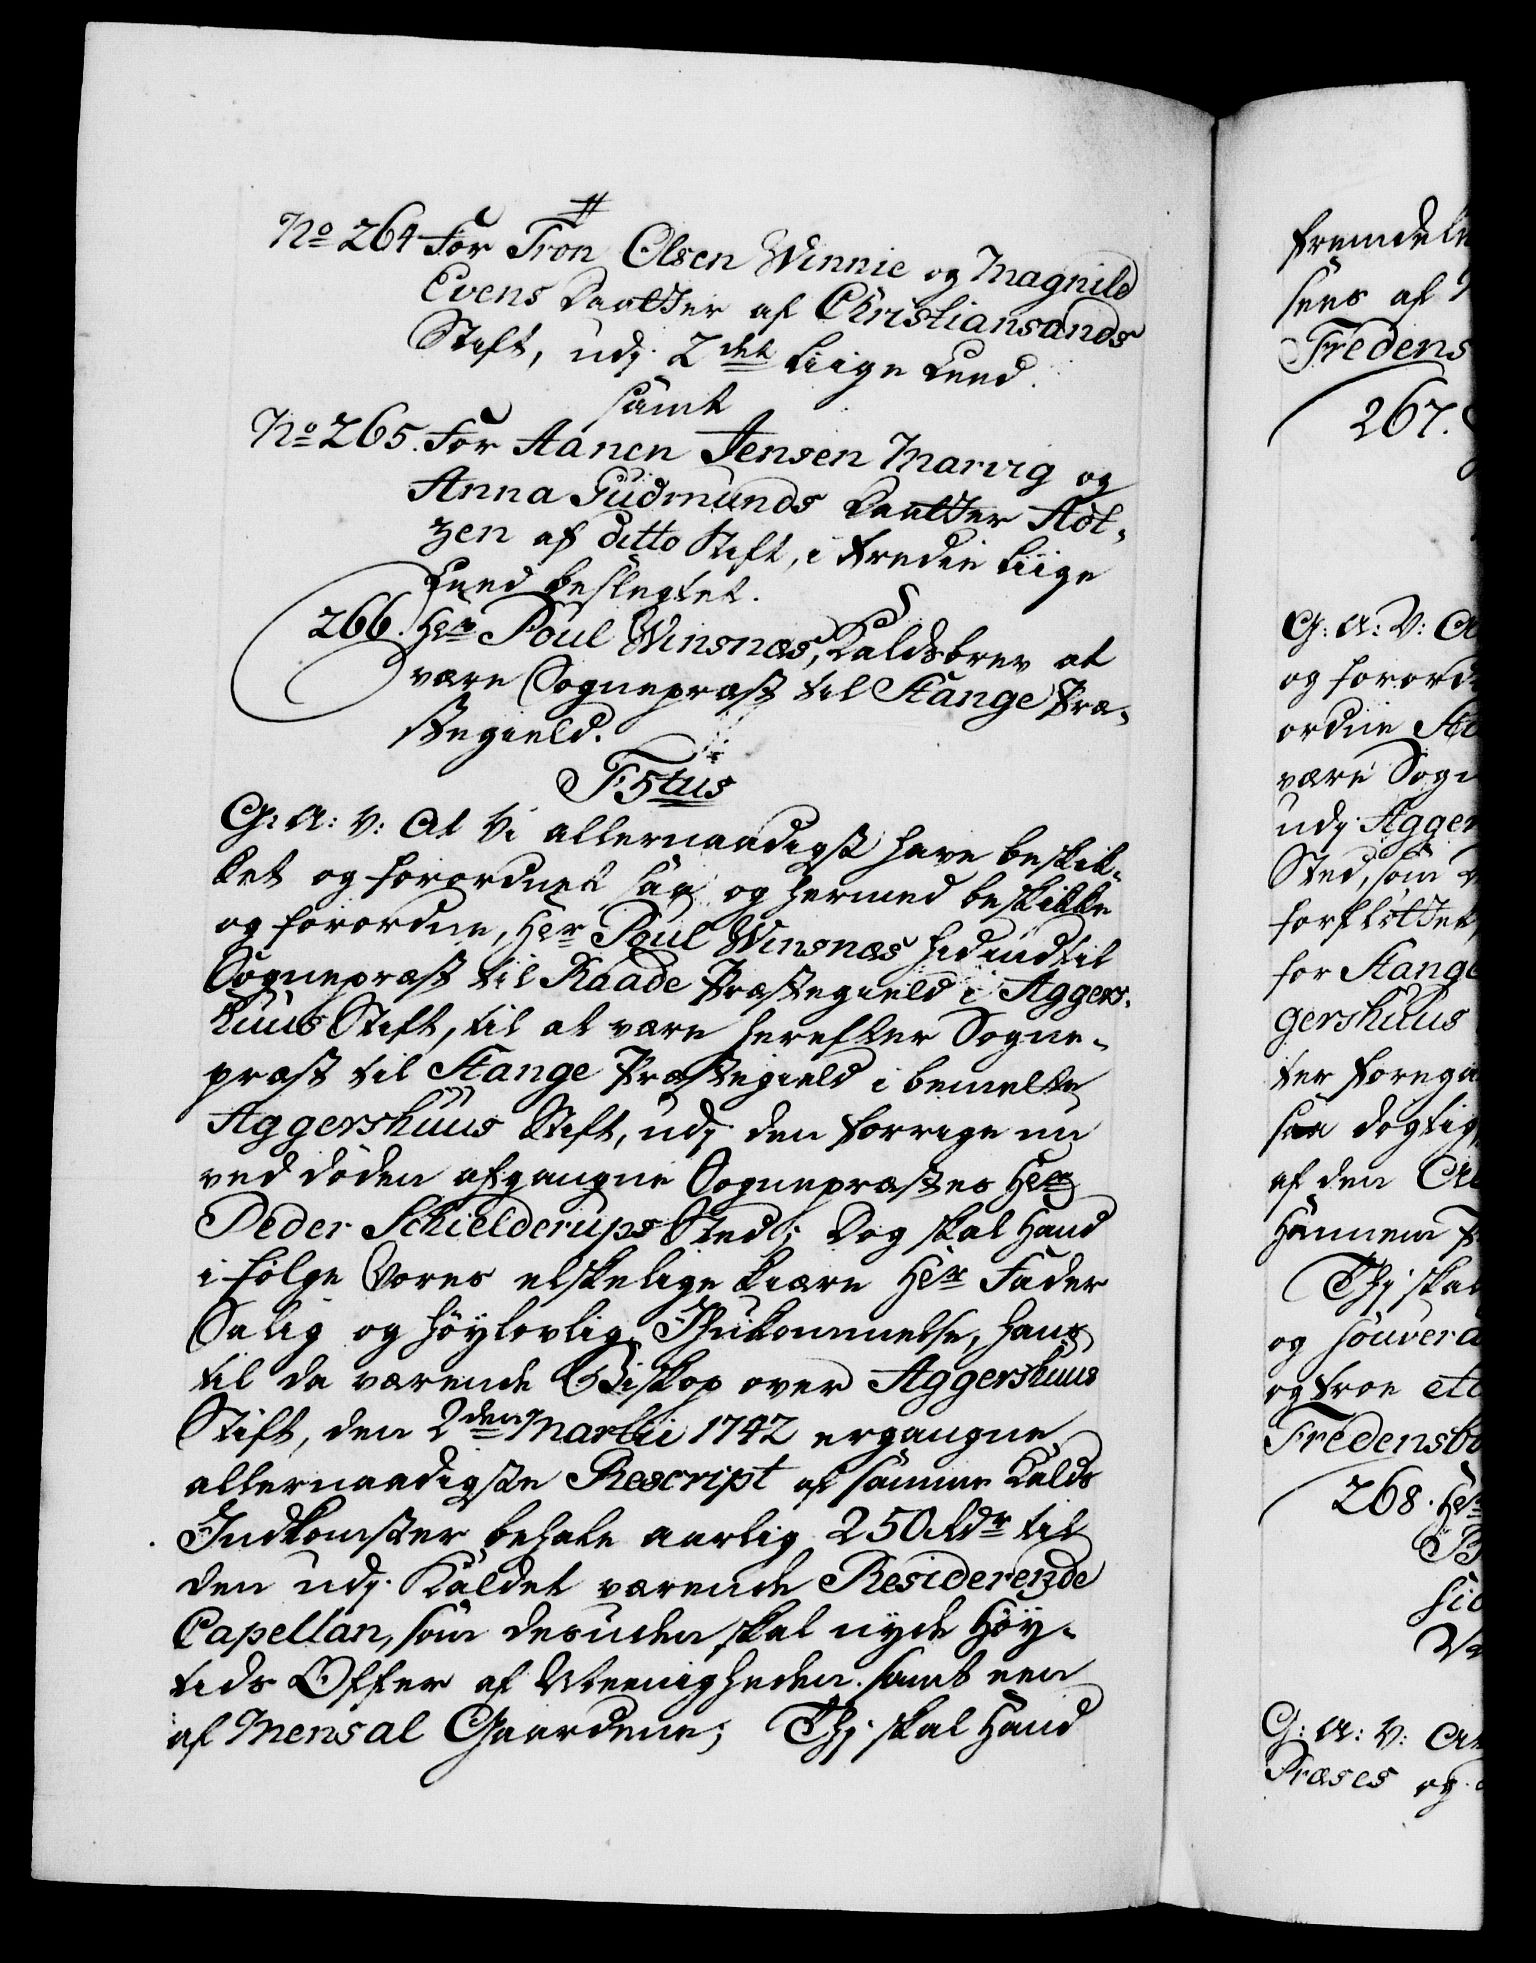 #
No 264 For Tron Olsen Winnie og Magnild
Evens Daatter af Christiansands
Stift, udj 2det Liige Leed.
samt
No 265. For Aanen Jensen Marvig og
Anna Gudmunds Daatter Aot-
zen af ditto Stift, i tredie Liige
Leed beslegtet.
266. Hr Poul Winsnæs, Kaldsbrev at
være Sognepræst til Stange Præ-
stegield.
F5tus
G: A: V: At Vi allernaadigst have beskik-
ket og forordnet saa og hermed beskikke
og forordne, Hr Poul Winsnæs hidindtil
Sognepræst til Raade Præstegield i Aggers-
huus Stift, til at være herefter Sogne-
præst til Stange Præstegield i bemelte
Aggershuus Stift, udj den forrige nu
ved døden afgangne Sognepræstes Hr
Peder Schielderups Sted; Dog skal Hand
i følge Vores elskelige kiære Hr Fader
Salig og høylovlig Ihukommelse, hans
til da værende Biskop over Aggershuus
Stift, den 2den Martii 1742 ergangne
allernaadigste Rescript af samme Kalds
Indkomster betale aarlig 250 rdr til
den udj Kaldet værende Residerende
Capellan, som desuden skal nyde Høy-
tids Offer af Meenigheden samt een
af Mensal Gaardene; Thj skal Hand
fremdele
sees af
Fredens
267.
G: A: V: At
og forord
ordne
være Sogn
udj Agger
Sted, som
forflöttet
for Stange
gershuus
ter foregaa
saa dogtig
af den
Hannem
Thj skal
og souvera
og troe etc
Fredensbo
268. Hr
G: A: V: At
Præses og